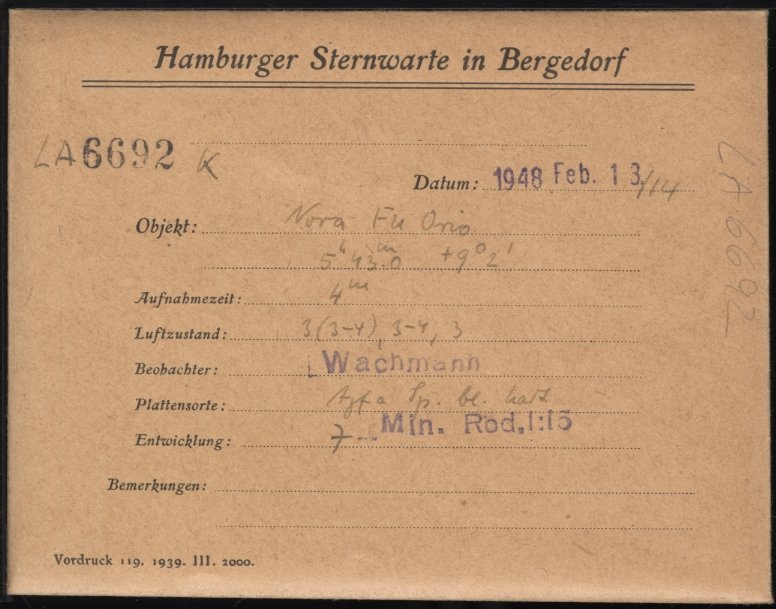 Hamburger Sternwarte in Bergedorf
LA 6692 K
Datum: 1948 Feb. 13./14
Objekt: Nova FU Orio
5ʰ43ᵐ.0 +9°2'
Aufnahmezeit: 4ᵐ
Luftzustand: 3(3-4), 3-4, 3
Beobachter: Wachmann
Plattensorte: Agfa Sp. bl. hart
Entwicklung: 7 Min. Rod, 1:15
Bemerkungen:
Vordruck 119. 1939. III. 2000.
LA 6692